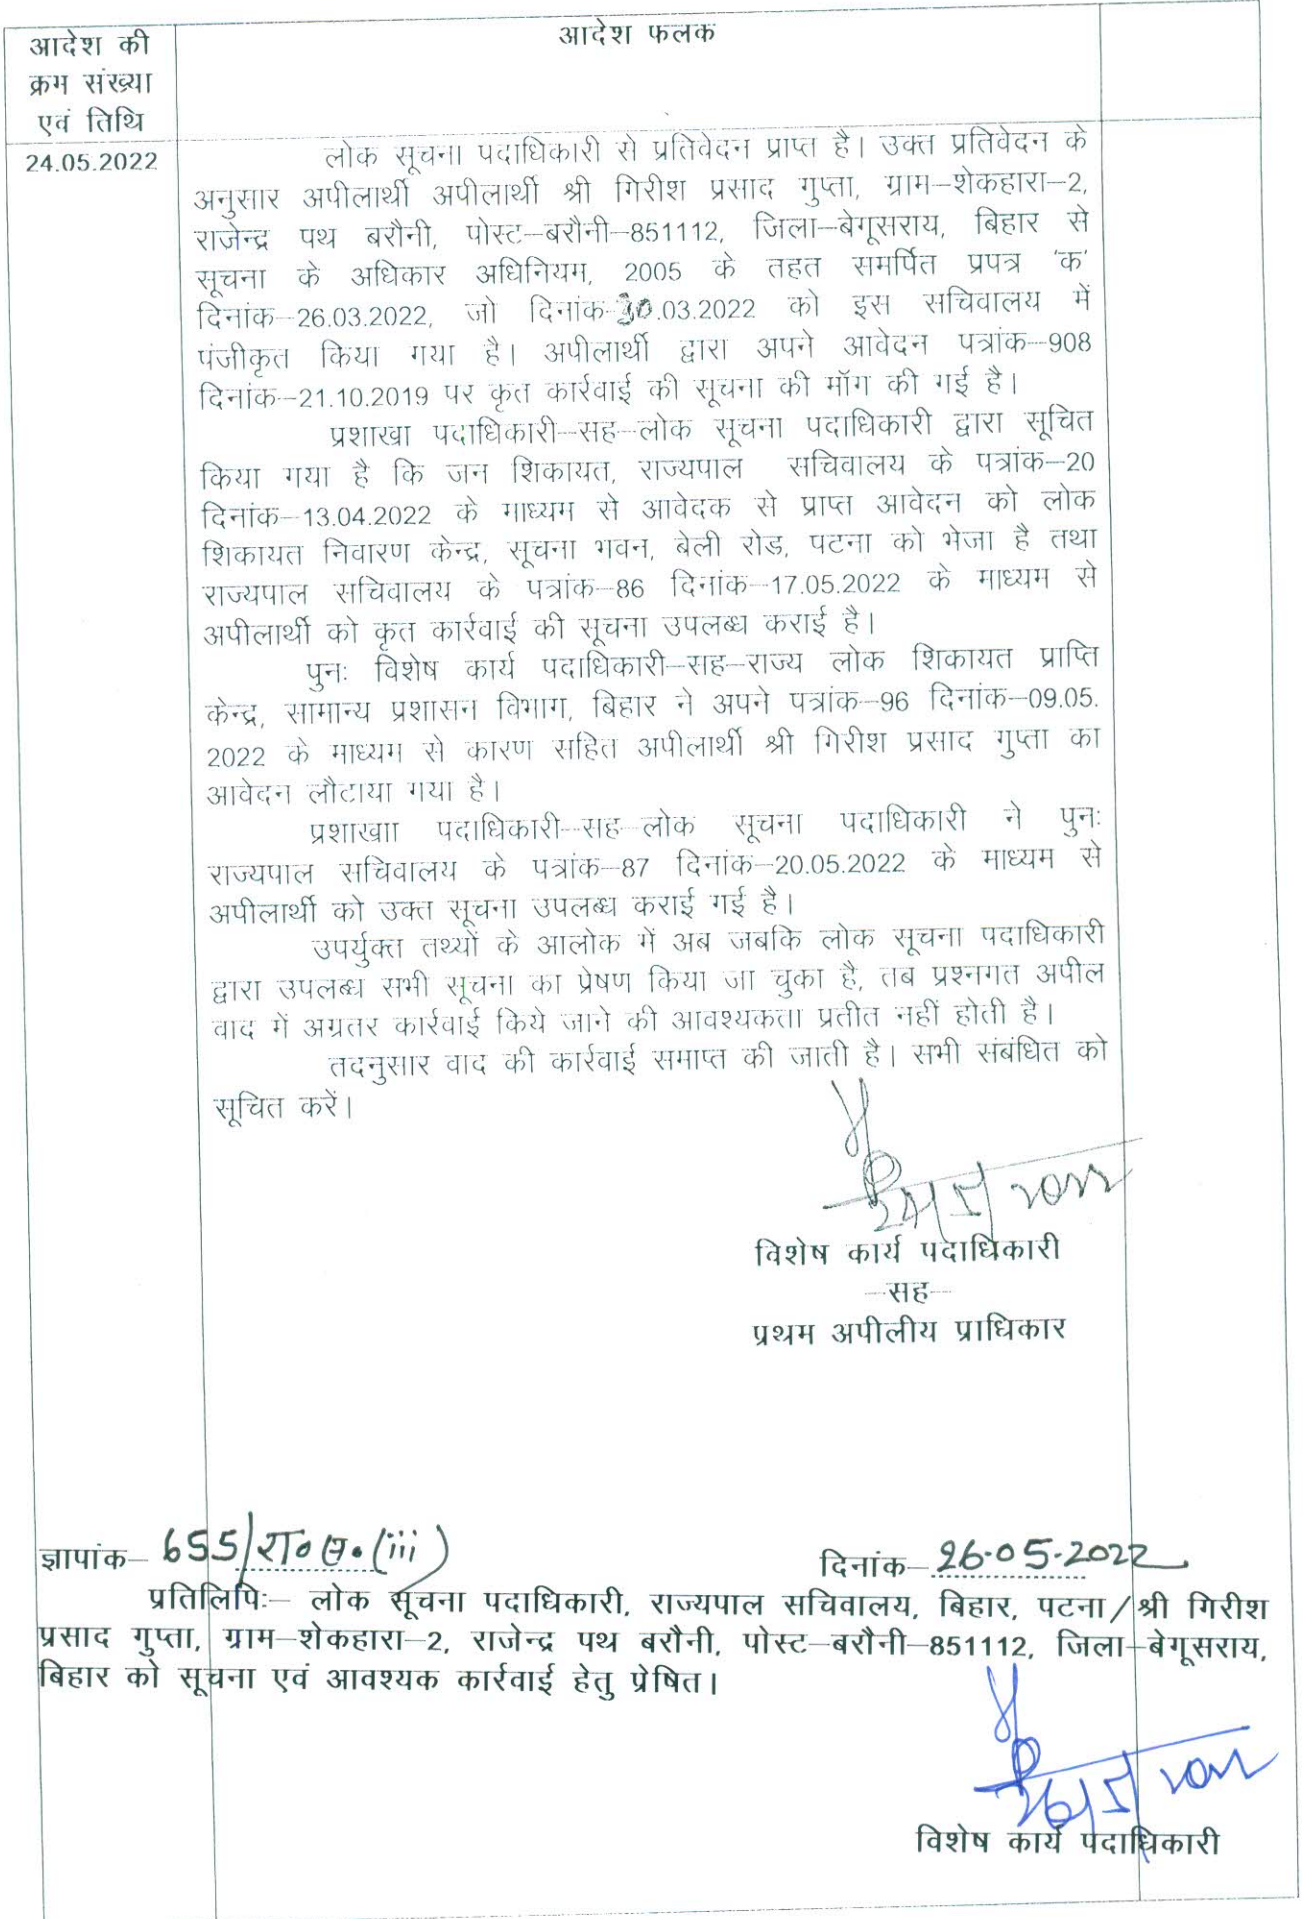 आदेश की
क्रम संख्या
एवं तिथि
आदेश फलक
24.05.2022
लोक सूचना पदाधिकारी से प्रतिवेदन प्राप्त है। उक्त प्रतिवेदन के
अनुसार अपीलार्थी अपीलार्थी श्री गिरीश प्रसाद गुप्ता, ग्राम–शेकहारा–2,
राजेन्द्र पथ बरौनी, पोस्ट–बरौनी–851112, जिला–बेगूसराय, बिहार से
सूचना के अधिकार अधिनियम, 2005 के तहत समर्पित प्रपत्र 'क'
दिनांक–26.03.2022, जो दिनांक–30.03.2022 को इस सचिवालय में
पंजीकृत किया गया है। अपीलार्थी द्वारा अपने आवेदन पत्रांक–908
दिनांक–21.10.2019 पर कृत कार्रवाई की सूचना की मॉग की गई है।
प्रशाखा पदाधिकारी–सह–लोक सूचना पदाधिकारी द्वारा सूचित
किया गया है कि जन शिकायत, राज्यपाल सचिवालय के पत्रांक–20
दिनांक–13.04.2022 के माध्यम से आवेदक से प्राप्त आवेदन को लोक
शिकायत निवारण केन्द्र, सूचना भवन, बेली रोड, पटना को भेजा है तथा
राज्यपाल सचिवालय के पत्रांक–86 दिनांक–17.05.2022 के माध्यम से
अपीलार्थी को कृत कार्रवाई की सूचना उपलब्ध कराई है।
पुनः विशेष कार्य पदाधिकारी–सह–राज्य लोक शिकायत प्राप्ति
केन्द्र, सामान्य प्रशासन विभाग, बिहार ने अपने पत्रांक–96 दिनांक–09.05.
2022 के माध्यम से कारण सहित अपीलार्थी श्री गिरीश प्रसाद गुप्ता का
आवेदन लौटाया गया है।
प्रशाखाा पदाधिकारी–सह–लोक सूचना पदाधिकारी ने पुनः
राज्यपाल सचिवालय के पत्रांक–87 दिनांक–20.05.2022 के माध्यम से
अपीलार्थी को उक्त सूचना उपलब्ध कराई गई है।
उपर्युक्त तथ्यों के आलोक में अब जबकि लोक सूचना पदाधिकारी
द्वारा उपलब्ध सभी सूचना का प्रेषण किया जा चुका है, तब प्रश्नगत अपील
वाद में अग्रतर कार्रवाई किये जाने की आवश्यकता प्रतीत नहीं होती है।
तदनुसार वाद की कार्रवाई समाप्त की जाती है। सभी संबंधित को
सूचित करें।
विशेष कार्य पदाधिकारी
–सह–
प्रथम अपीलीय प्राधिकार
ज्ञापांक– 655/रा०स०(iii)
दिनांक– 26.05.2022
प्रतिलिपिः– लोक सूचना पदाधिकारी, राज्यपाल सचिवालय, बिहार, पटना/श्री गिरीश
प्रसाद गुप्ता, ग्राम–शेकहारा–2, राजेन्द्र पथ बरौनी, पोस्ट–बरौनी–851112, जिला–बेगूसराय,
बिहार को सूचना एवं आवश्यक कार्रवाई हेतु प्रेषित।
विशेष कार्य पदाधिकारी